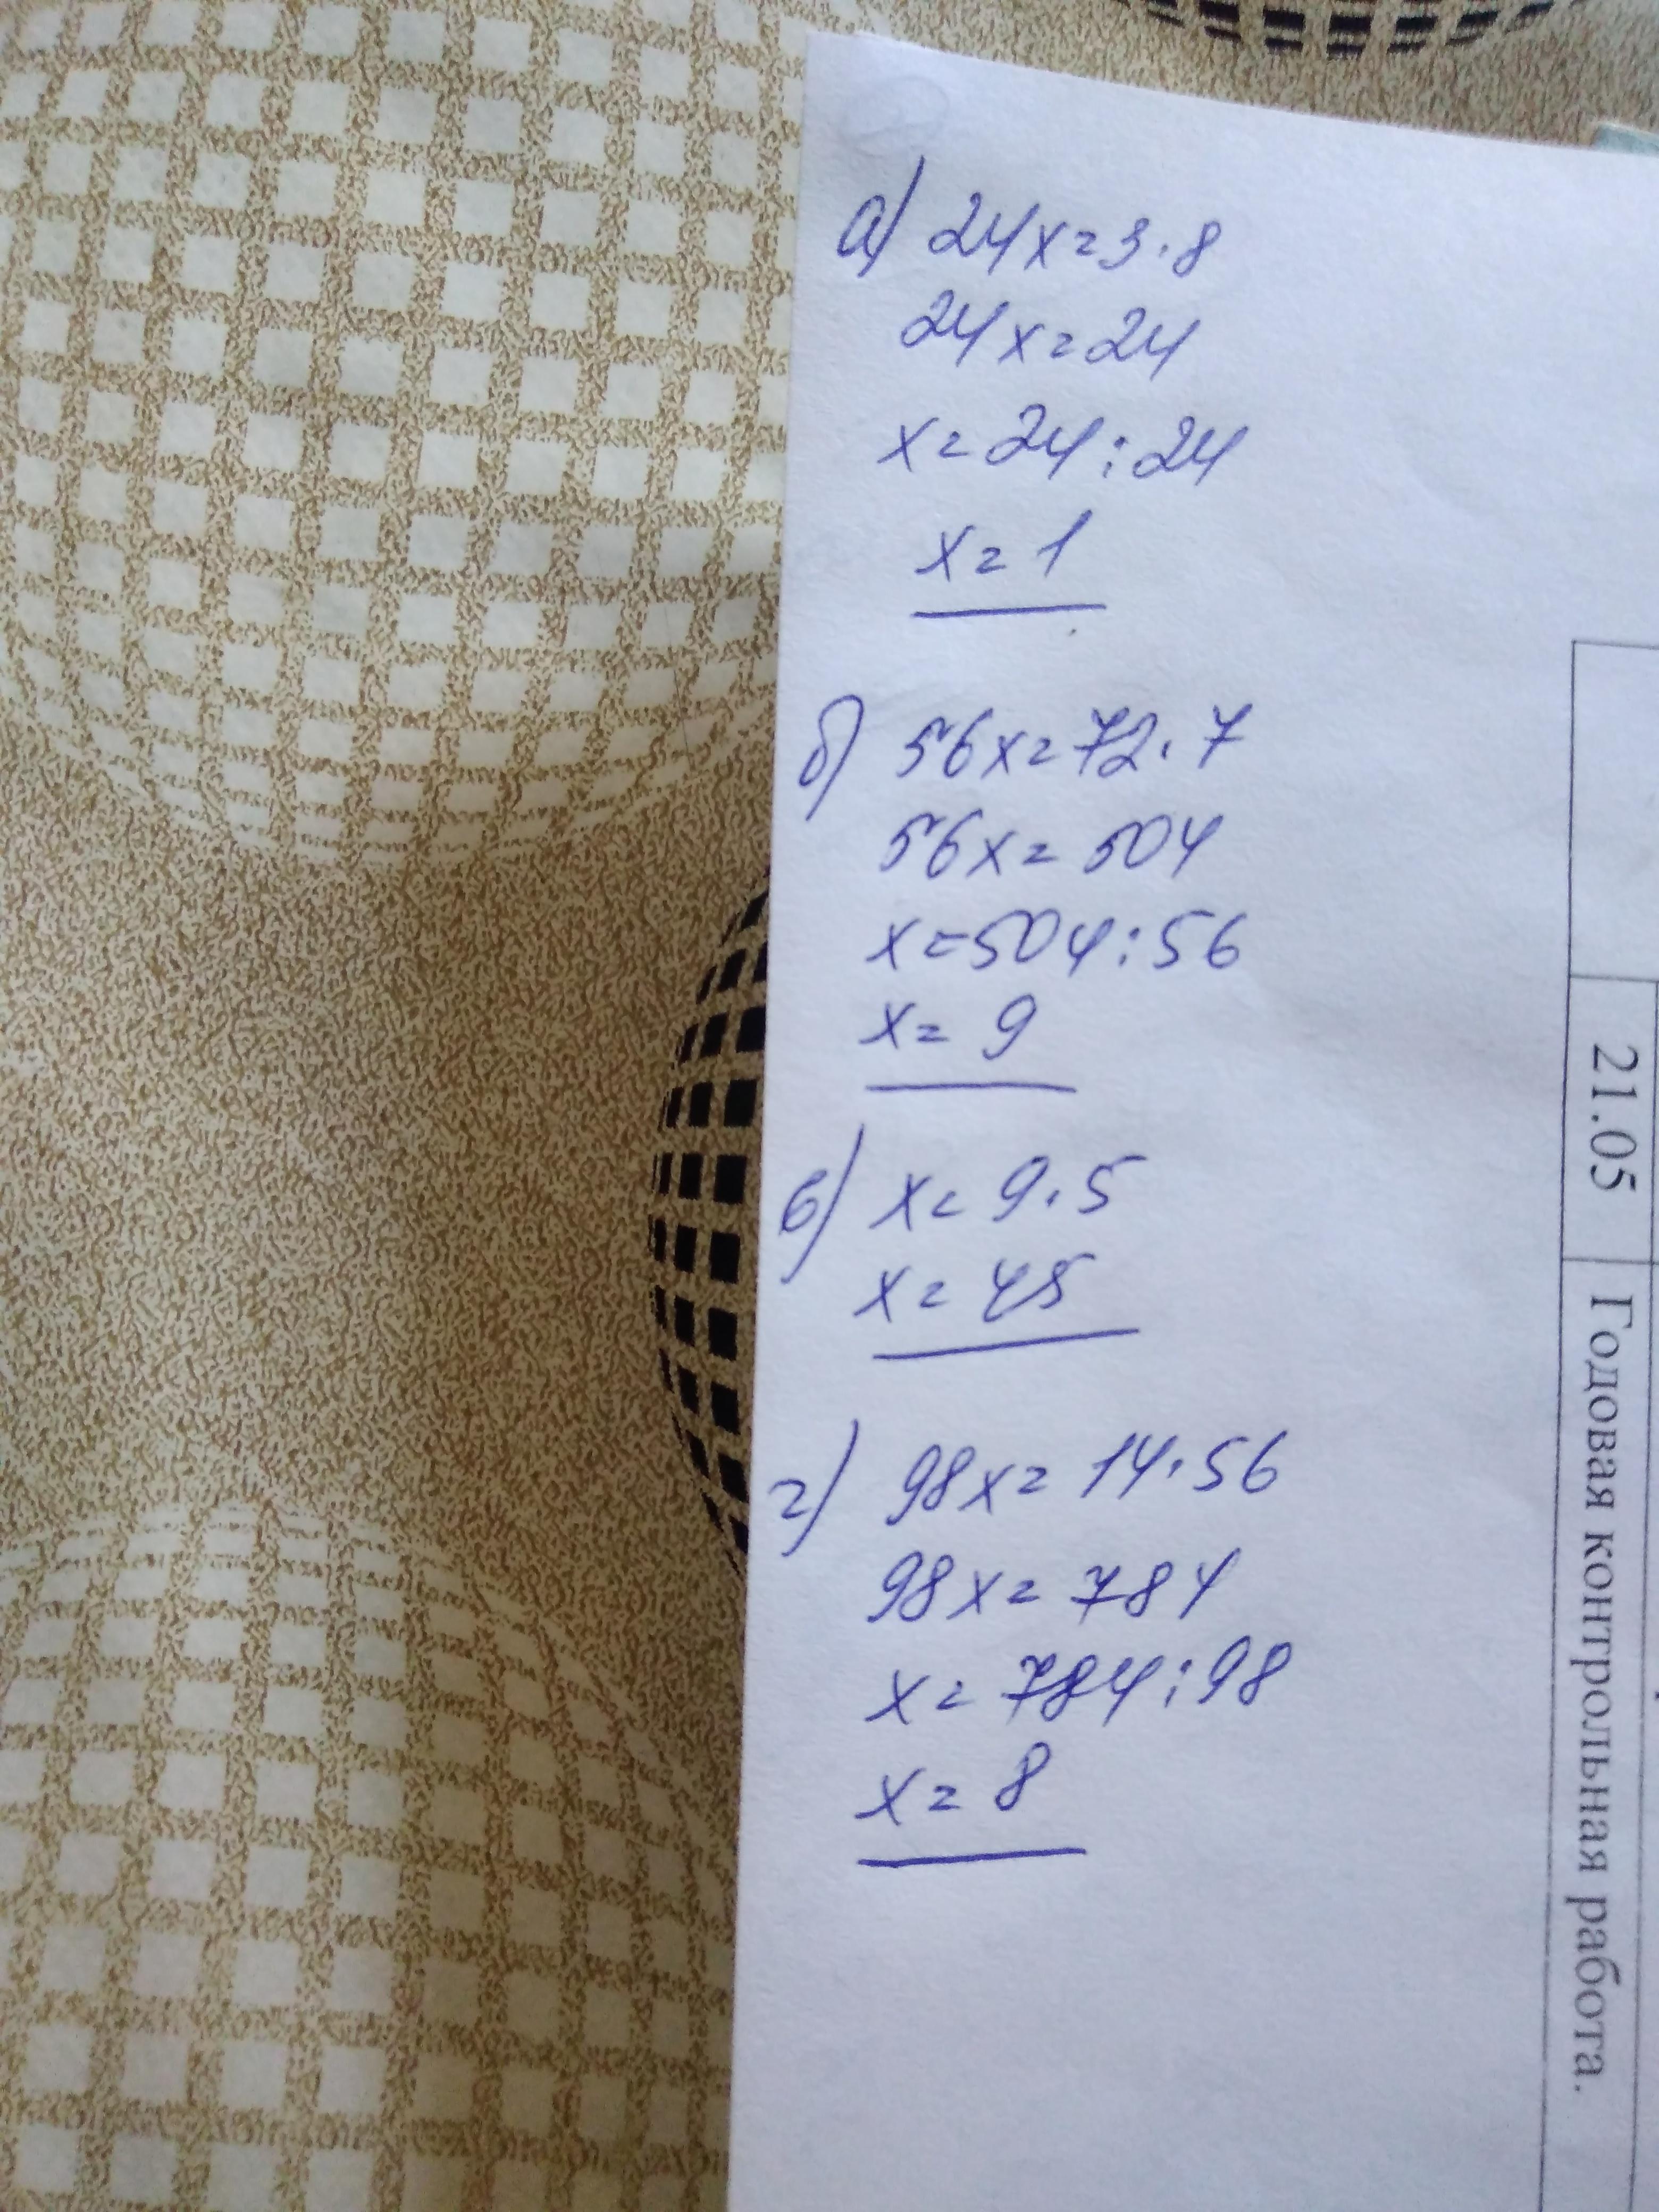 а) 24x=3·8
24x=24
x=24:24
x=1
б) 56x=72·7
56x=504
x=504:56
x=9
в) x=9·5
x=45
г) 98x=14·56
98x=784
x=784:98
x=8
21.05 Годовая контрольная работа.